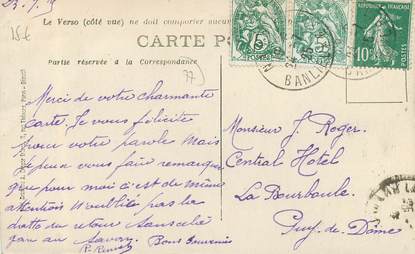 23-7-19
15€
Le Verso (côté vue) ne doit comporter aucune
CARTE PO
Partie réservée à la Correspondance
77
Merci de votre charmante
carte. Je vous félicite
pour votre parole mais
je peux vous faire remarquer
que pour moi c'est de même
Attention n'oubliez pas la
date du retour
au Savoy
Bons Souvenirs
Monsieur J. Roger.
Central Hotel
La Bourboule
Puy-de-Dôme
BANLI
10